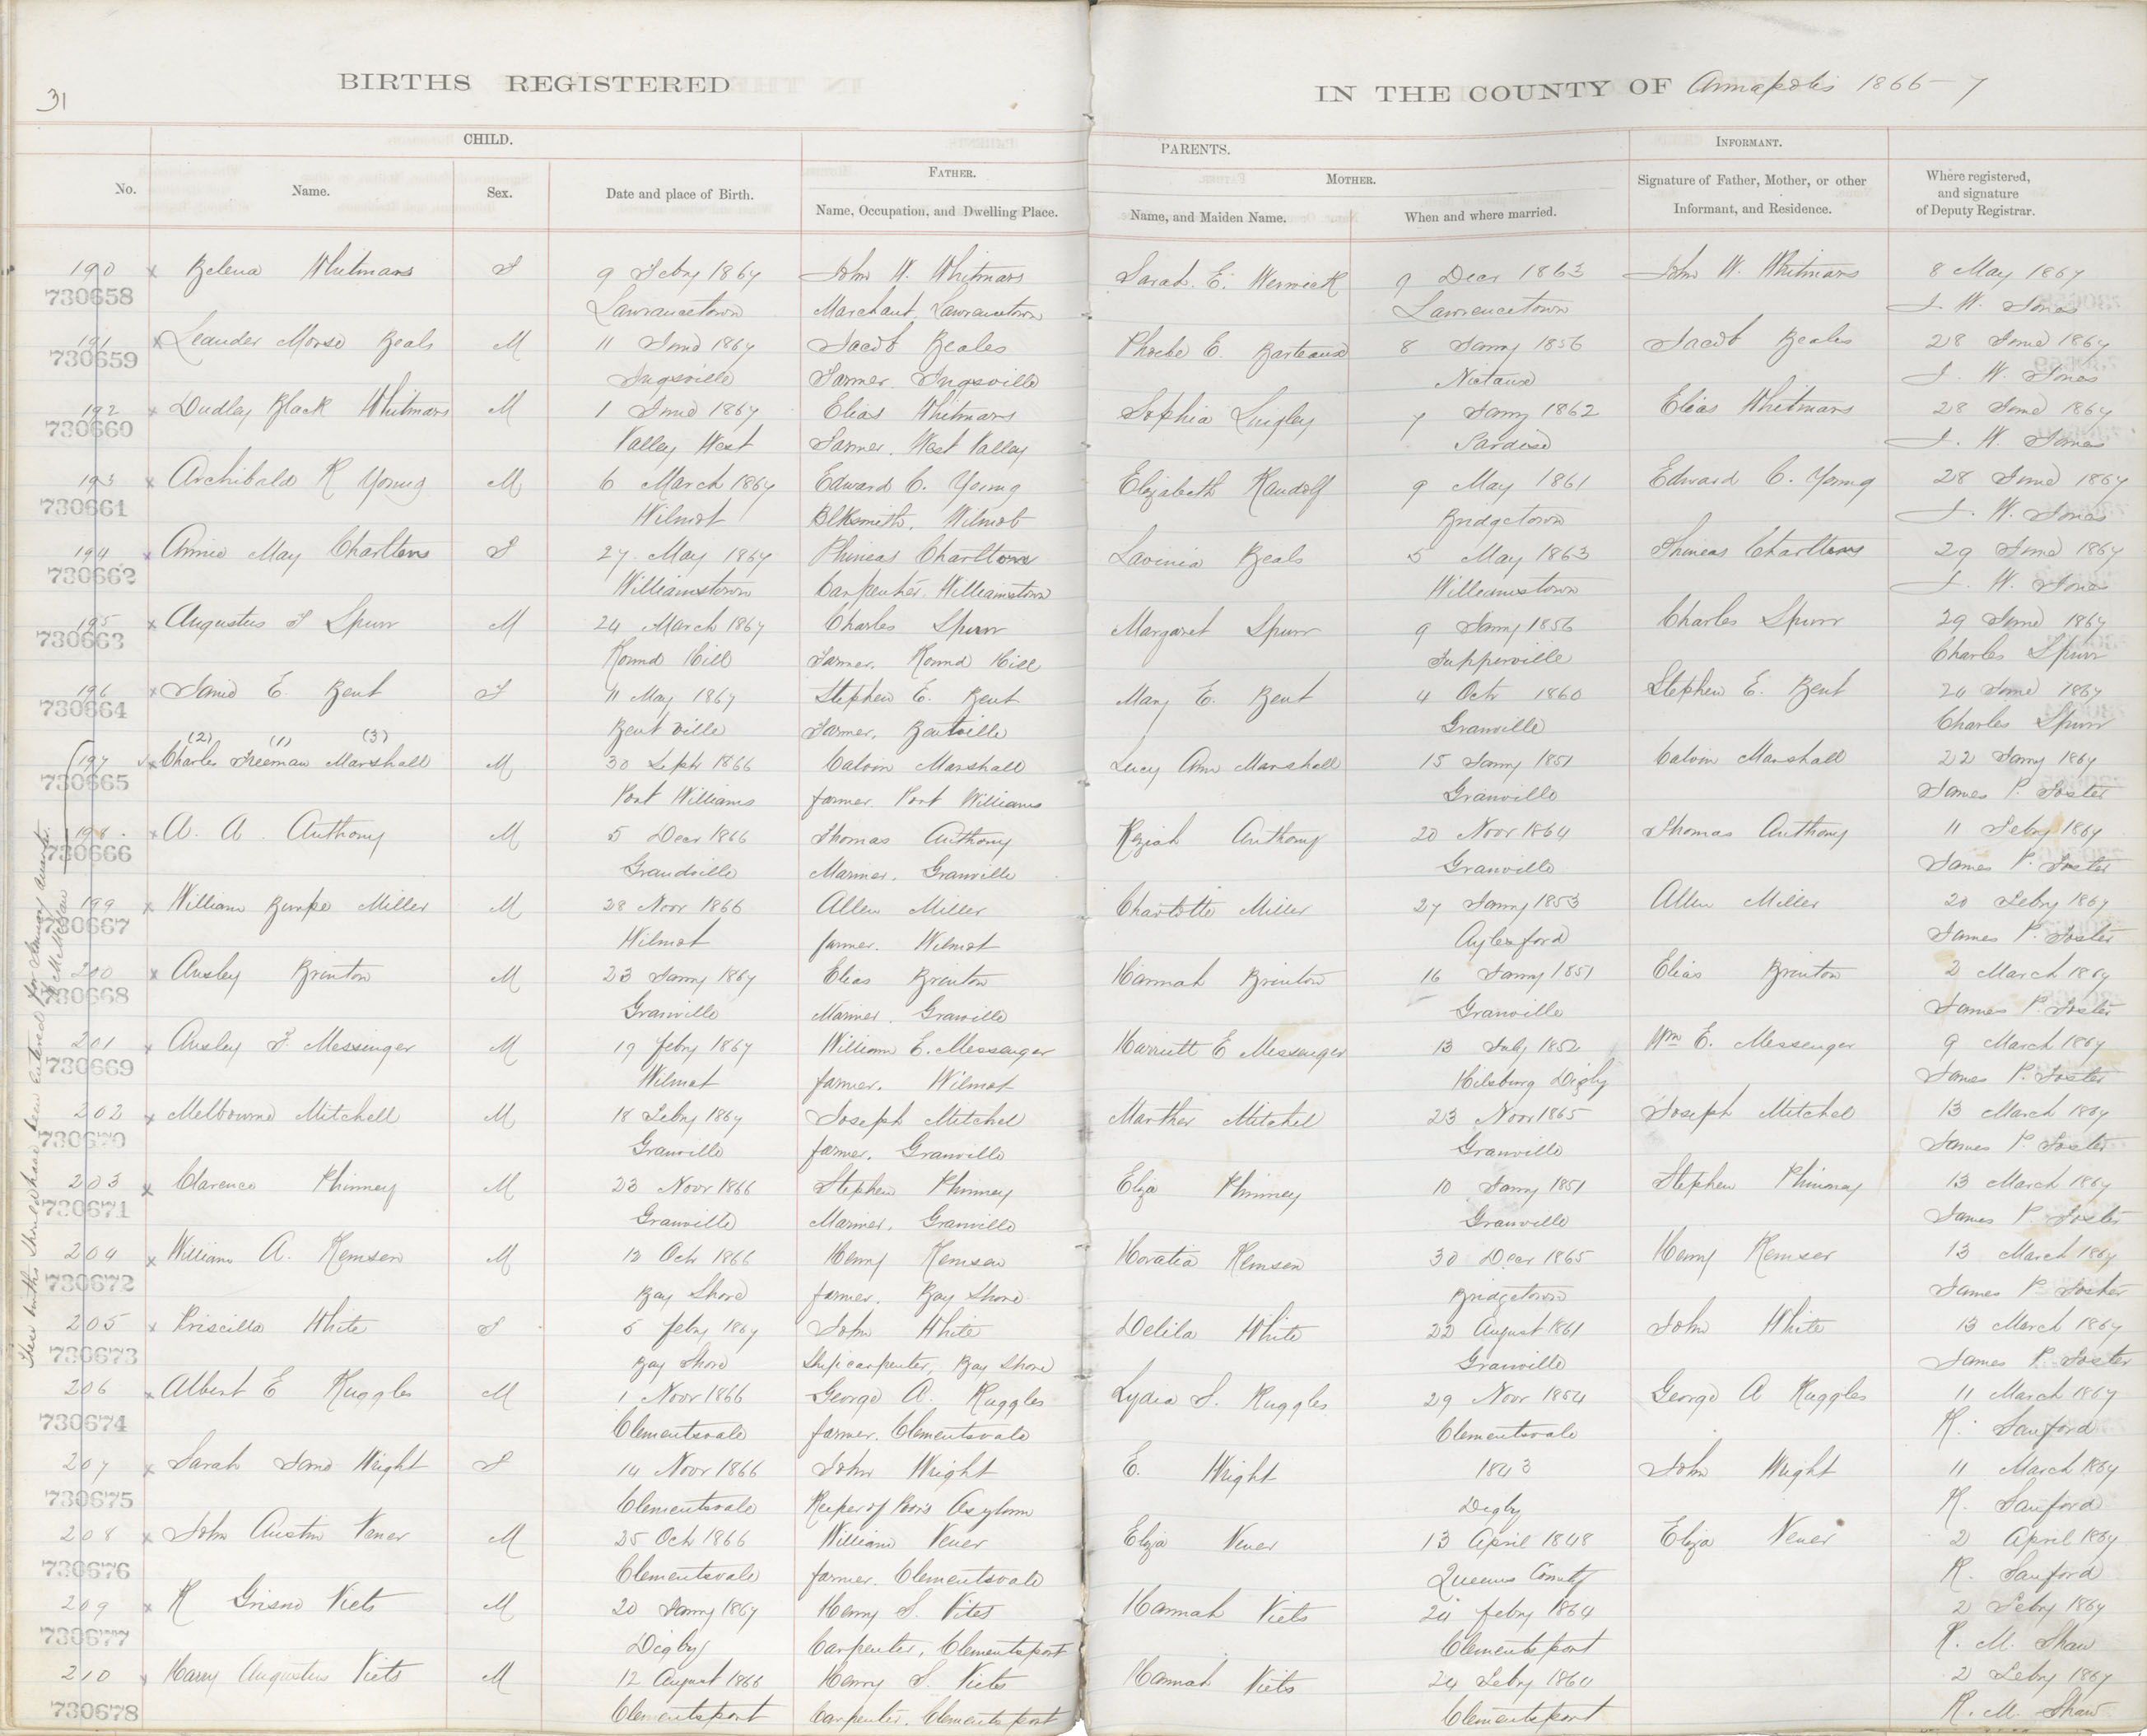 31
BIRTHS REGISTERED
IN THE COUNTY OF Annapolis 1866-7
CHILD.
PARENTS.
INFORMANT.
No.
Name.
Sex.
Date and place of Birth.
FATHER.
Name, Occupation, and Dwelling Place.
MOTHER.
Name, and Maiden Name.
When and where married.
Signature of Father, Mother, or other
Informant, and Residence.
Where registered,
and signature
of Deputy Registrar.
190 x Whitman F 9 Feby 1867 John W. Whitman Sarah. E. Werwick 9 Decr 1863 John W. Whitman 8 May 1867
730658 Lawrancetown Marchant. Lawrancetown Lawrencetown J. W. Jones
191 x Leander Morse Beals M 11 June 1867 Jacob Beales Phoebe E. Barteaux 8 Jany 1856 Jacob Beales 28 June 1867
730659 Ingsville Farmer. Ingsville Nictaux J. W. Jones
192 x Dudley Black Whitman M 1 June 1867 Elias Whitman Sophia Lugley 7 Jany 1862 Elias Whitman 28 June 1867
730660 Valley West Farmer. West Valley Pardise J. W. Jones
193 x Archibald R Young M 6 March 1867 Edward C. Young Elizabeth Randolf 9 May 1861 Edward C. Young 28 June 1867
730661 Wilmot Blksmith. Wilmot Bridgetown J. W. Jones
194 x Annie May Charlton F 27 May 1867 Phineas Charlton Lavinia Beals 5 May 1863 Phineas Charlton 29 June 1867
730662 Williamstown Carpenter. Williamstown Williamstown J. W. Jones
195 x Augustus F Spurr M 24 March 1867 Charles Spurr Margaret Spurr 9 Jany 1856 Charles Spurr 29 June 1867
730663 Round Hill Farmer. Round Hill Tupperville Charles Spurr
196 x Janie E. Bent F 11 May 1867 Stephen E. Bent Mary E. Bent 4 Octr 1860 Stephen E. Bent 24 June 1867
730664 Bent ville Farmer. Bentville Granville Charles Spurr
(2) (1) (3)
197 x Charles Freeman Marshall M 30 Sept 1866 Calvin Marshall Lucy Ann Marshall 15 Jany 1851 Calvin Marshall 22 Jany 1867
730665 Port Williams farmer. Port Williams Granville James P. Foster
198 x A. A. Anthony M 5 Decr 1866 Thomas Anthony Keziah Anthony 20 Novr 1864 Thomas Anthony 11 Feby 1867
730666 Grandville Mariner. Granville Granville James P. Foster
199 x William Burpe Miller M 28 Novr 1866 Allen Miller Charlotte Miller 27 Jany 1853 Allen Miller 20 Feby 1867
730667 Wilmot farmer. Wilmot Aylesford James P. Foster
200 x Ansley Brinton M 23 Jany 1867 Elias Brinton Hannah Brinton 16 Jany 1851 Elias Brinton 2 March 1867
730668 Granville Mariner. Granville Granville James P. Foster
201 x Ansley F. Messinger M 19 feby 1867 William E. Messenger Harriett E Messenger 13 July 1852 Wm E. Messenger 9 March 1867
730669 Wilmot farmer. Wilmot Hilsburg Digby James P. Foster
202 x Melbourne Mitchell M 18 Feby 1867 Joseph Mitchel Marther Mitchel 23 Novr 1865 Joseph Mitchel 13 March 1867
730670 Granville farmer. Granville Granville James P. Foster
203 x Clarence Phinney M 23 Novr 1866 Stephen Phinney Eliza Phinney 10 Jany 1851 Stephen Phinney 13 March 1867
730671 Granville Mariner. Granville Granville James P. Foster
204 x William A. Remsen M 12 Octr 1866 Henry Remsen Horatia Remsen 30 Decr 1865 Henry Remser 13 March 1867
730672 Bay Shore farmer. Bay Shore Bridgetown James P. Foster
205 x Priscilla White F 5 feby 1867 John White Delila White 22 August 1861 John White 13 March 1867
730673 Bay Shore Shipcarpenter. Bay Shore Granville James P. Foster
206 x Albert E Ruggles M 1 Novr 1866 George A. Ruggles Lydia S. Ruggles 29 Novr 1854 George A Ruggles 11 March 1867
730674 Clementsvale farmer. Clementsvale Clementsvale R. Sanford
207 x Sarah Jane Wright F 14 Novr 1866 John Wright E. Wright 1843 John Wright 11 March 1867
730675 Clementsvale Keeper of Poors Asylum Digby R. Sanford
208 x John Austin Vener M 25 Octr 1866 William Vener Eliza Vener 13 April 1848 Eliza Vener 2 April 1867
730676 Clementsvale farmer. Clementsvale Queens County R. Sanford
209 x R Viets M 20 Jany 1867 Henry S. Vites Hannah Viets 24 feby 1864 2 Feby 1867
730677 Digby Carpenter, Clementsport Clementsport R. M. Shaw
210 x Harry Augustus Viets M 12 August 1866 Henry S. Viets Hannah Viets 24 Feby 1864 2 Feby 1867
730678 Clementsport Carpenter. Clementsport Clementsport R. M. Shaw
These births should have been entered for January quarter.